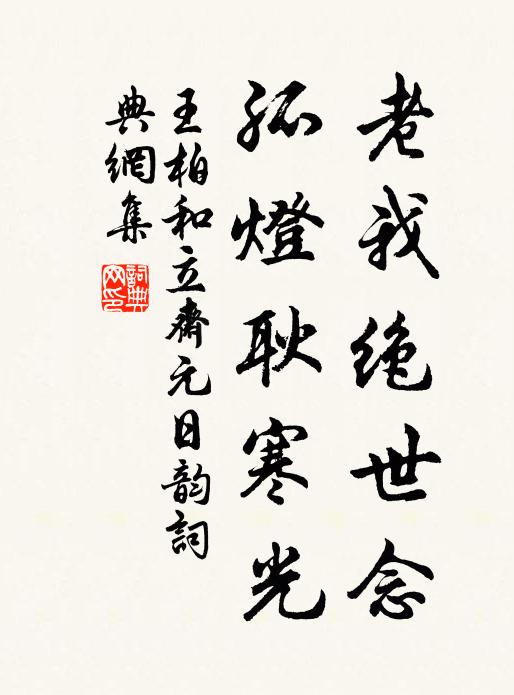 老我绝世念
孤燈耿寒光
王柏和立齋元日韵詞
典網集
詞典网印